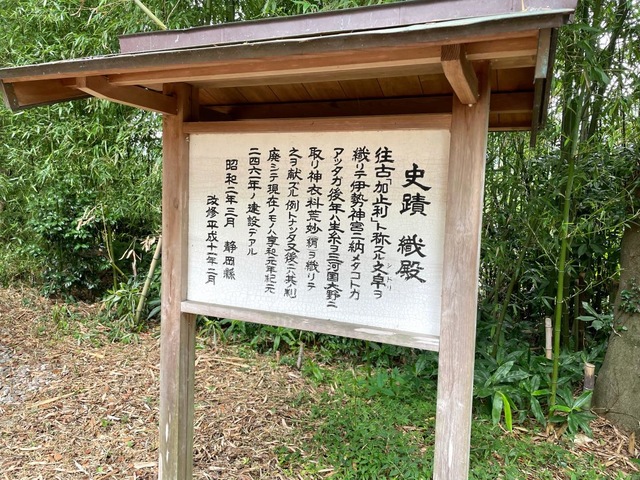 史蹟 織殿
往古「加止利」ト称スル文卓ヲ
織リテ伊勢神宮ニ納メタコトガ
アッタガ後年ハ生糸ヲ三河国大野ニ
取リ神衣料荒妙絹ヲ織リテ
之ヲ献ズル例トナッタ又後ニハ其ノ制
廃シテ現在ノモノハ享和元年紀元
二四六一年ノ建設デアル
昭和二年三月 静岡縣
改修平成十一年二月